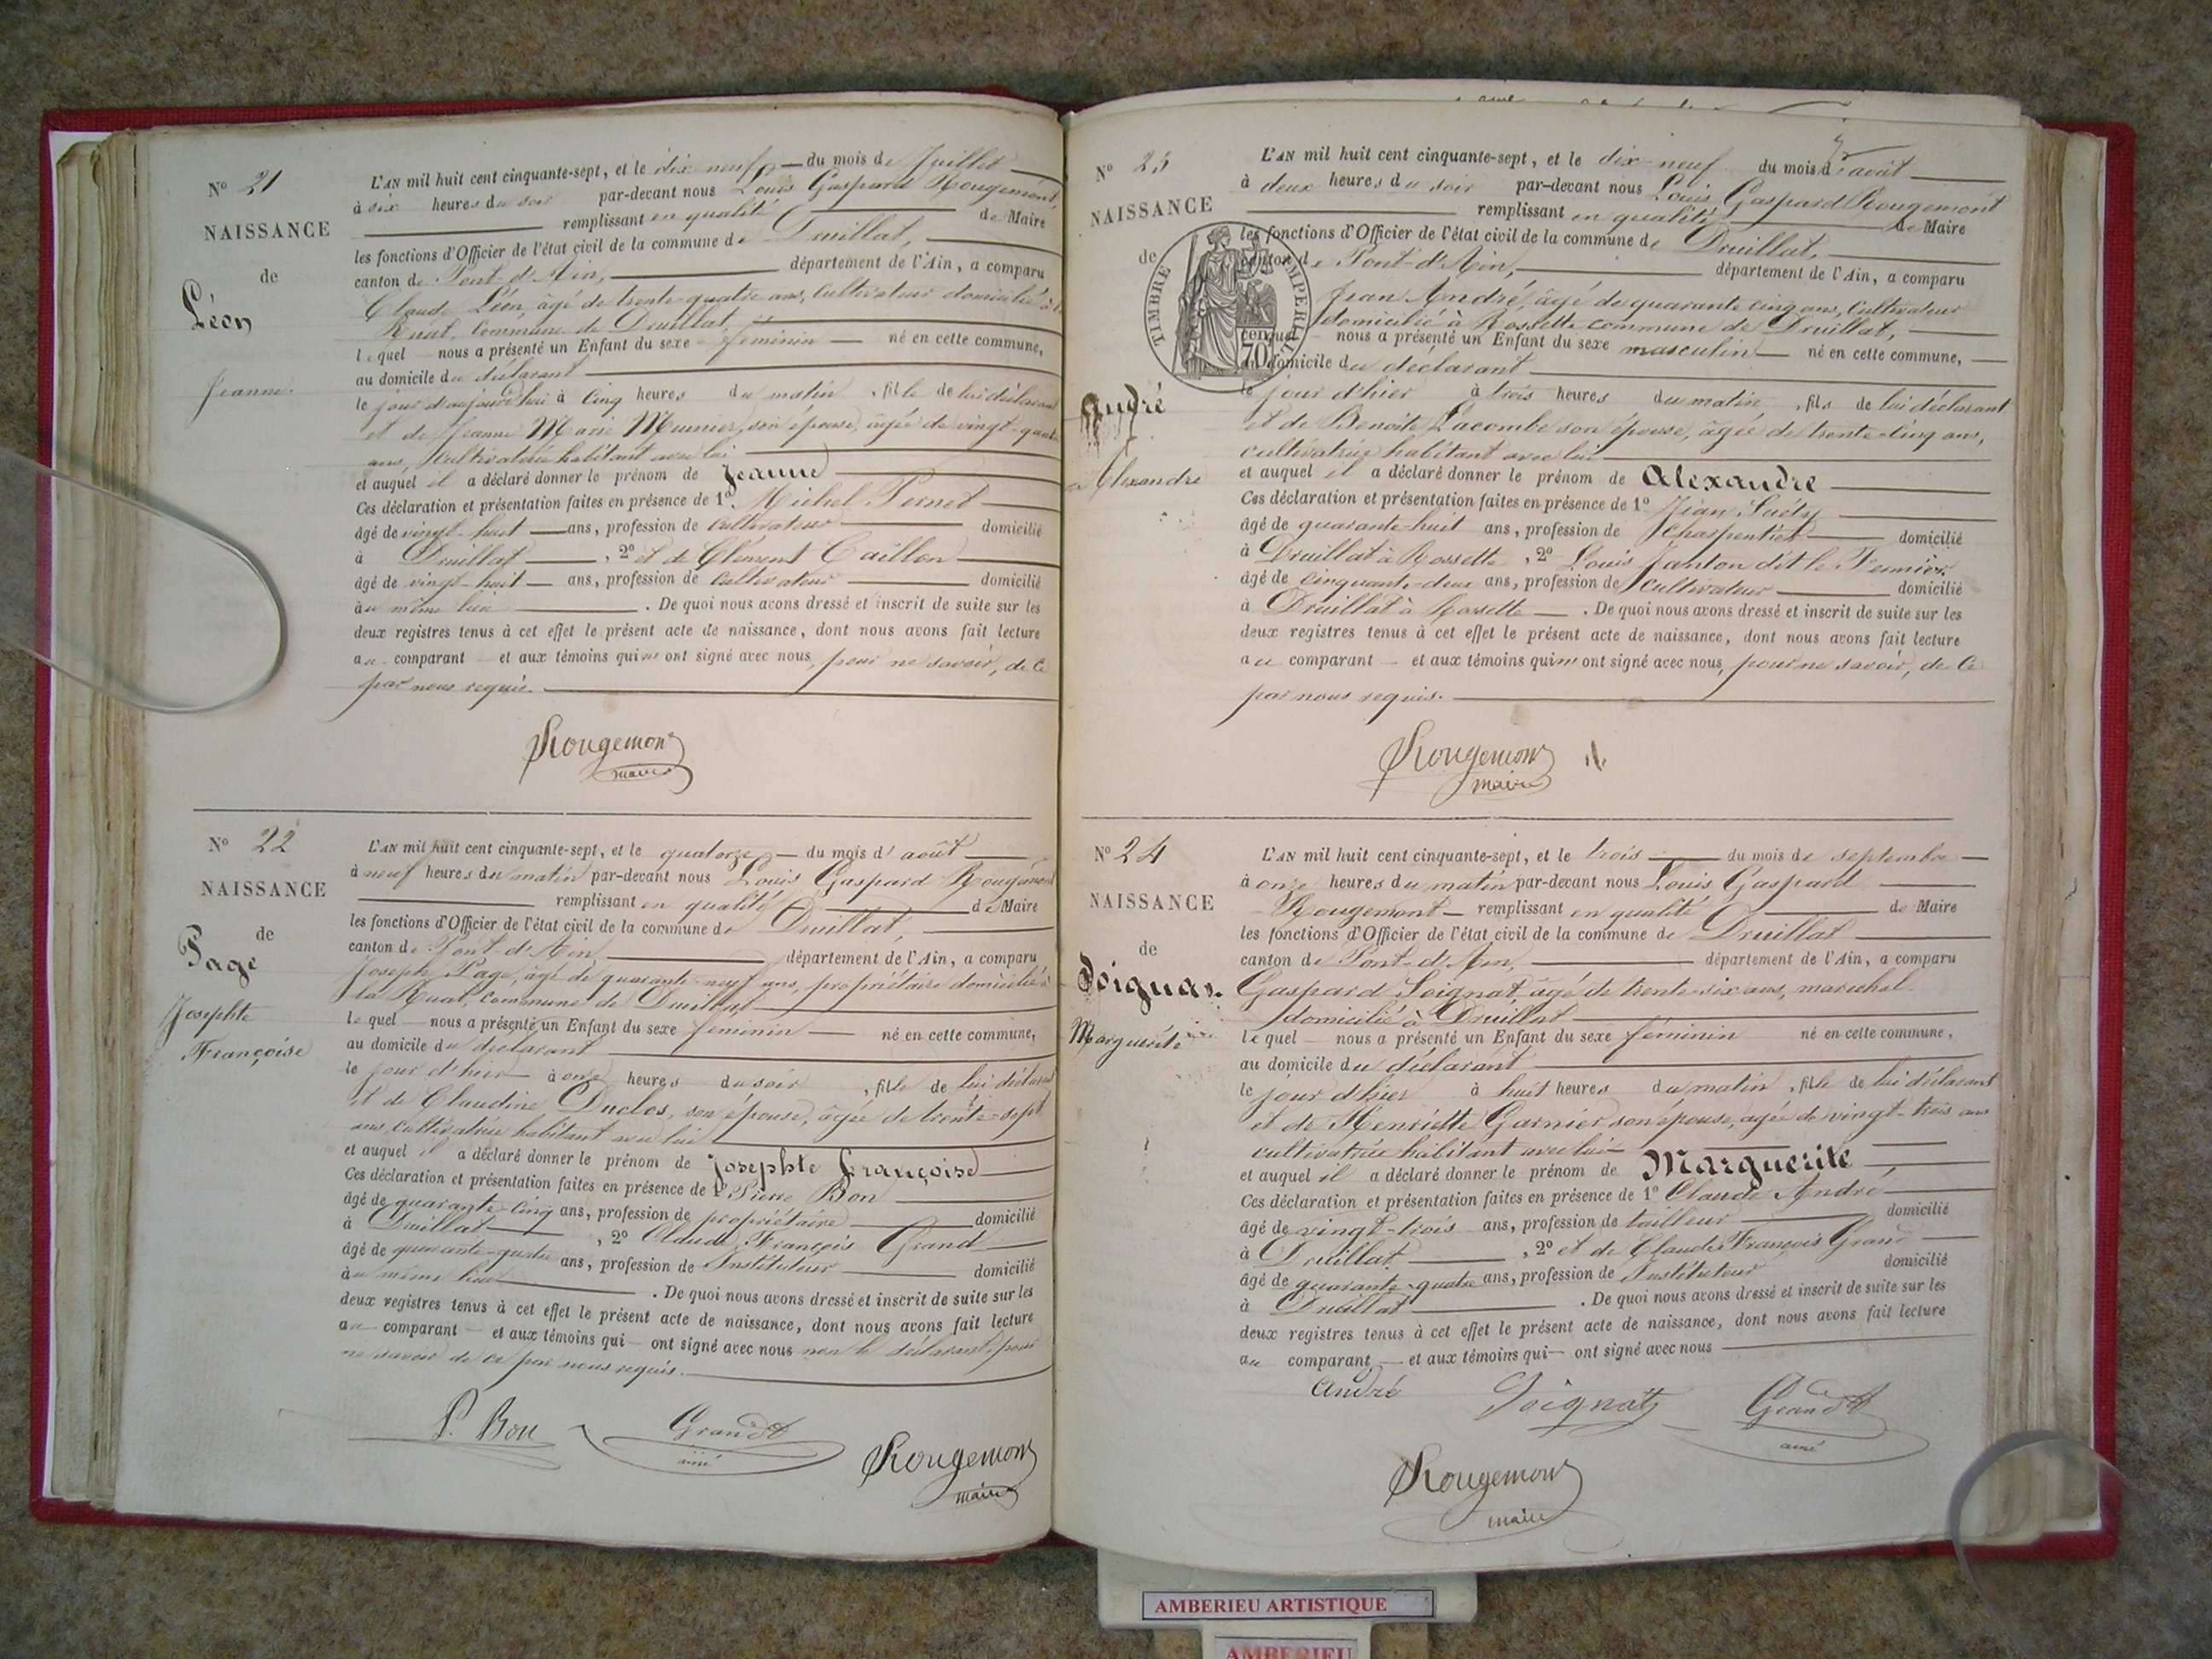 N° 21
NAISSANCE
de
Léon
Jeanne
L'AN mil huit cent cinquante-sept, et le dix neuf du mois de Juillet
à six heures du soir par-devant nous Louis Gaspard Rougemont,
remplissant en qualité de Maire
les fonctions d'Officier de l'état civil de la commune de Druillat,
canton de Pont-d'Ain, département de l'Ain, a comparu
Claude Léon, âgé de trente-quatre ans, Cultivateur domicilié à la
Ruat, Commune de Druillat,
lequel nous a présenté un Enfant du sexe féminin né en cette commune,
au domicile du déclarant
le jour d'aujourd'hui à cinq heures du matin, fille de lui déclarant
et de Jeanne Marie Munier, son épouse, âgée de vingt-quatre
ans, Cultivatrice habitant avec lui
et auquel il a déclaré donner le prénom de Jeanne
Ces déclaration et présentation faites en présence de 1° Michel Pernet
âgé de vingt-huit ans, profession de Cultivateur domicilié
à Druillat, 2° et de Clément Caillon
âgé de vingt-huit ans, profession de Cultivateur domicilié
au même lieu. De quoi nous avons dressé et inscrit de suite sur les
deux registres tenus à cet effet le présent acte de naissance, dont nous avons fait lecture
au comparant et aux témoins qui ne ont signé avec nous, pour ne savoir, de ce
par nous requis.
Rougemont
maire
N° 22
NAISSANCE
de
Page
Josephte
Françoise
L'AN mil huit cent cinquante-sept, et le quatorze du mois d'août
à neuf heures du matin par-devant nous Louis Gaspard Rougemont
remplissant en qualité de Maire
les fonctions d'Officier de l'état civil de la commune de Druillat,
canton de Pont-d'Ain, département de l'Ain, a comparu
Joseph Page, âgé de quarante-neuf ans, propriétaire domicilié à
la Ruat, commune de Druillat
lequel nous a présenté un Enfant du sexe féminin né en cette commune,
au domicile du déclarant
le jour d'hier à onze heures du soir, fille de lui déclarant
et de Claudine Duclos, son épouse, âgée de trente-sept
ans, cultivatrice habitant avec lui
et auquel il a déclaré donner le prénom de Josephte Françoise
Ces déclaration et présentation faites en présence de 1° Pierre Bon
âgé de quarante-cinq ans, profession de propriétaire domicilié
à Druillat, 2° Claude François Grand
âgé de quarante-quatre ans, profession de Instituteur domicilié
au même lieu. De quoi nous avons dressé et inscrit de suite sur les
deux registres tenus à cet effet le présent acte de naissance, dont nous avons fait lecture
au comparant et aux témoins qui ont signé avec nous non le déclarant, pour
ne savoir de ce par nous requis.
P. Bon Grand
ainé
Rougemont
maire
N° 23
NAISSANCE
de
André
Alexandre
TIMBRE IMPERIAL
70
L'AN mil huit cent cinquante-sept, et le dix-neuf du mois d'août
à deux heures du soir par-devant nous Louis Gaspard Rougemont
remplissant en qualité de Maire
les fonctions d'Officier de l'état civil de la commune de Druillat,
canton de Pont-d'Ain, département de l'Ain, a comparu
Jean André, âgé de quarante cinq ans, Cultivateur
domicilié à Rossette commune de Druillat,
lequel nous a présenté un Enfant du sexe masculin né en cette commune,
au domicile du déclarant
le jour d'hier à trois heures du matin, fils de lui déclarant
et de Benoîte Lacombe son épouse, âgée de trente-cinq ans,
cultivatrice habitant avec lui
et auquel il a déclaré donner le prénom de Alexandre
Ces déclaration et présentation faites en présence de 1° Jean
âgé de quarante-huit ans, profession de Charpentier domicilié
à Druillat à Rossette, 2° Louis Janton dit le Fermier
âgé de cinquante-deux ans, profession de Cultivateur domicilié
à Druillat à Rossette. De quoi nous avons dressé et inscrit de suite sur les
deux registres tenus à cet effet le présent acte de naissance, dont nous avons fait lecture
au comparant et aux témoins qui n'ont signé avec nous, pour ne savoir, de ce
par nous requis.
Rougemont
maire
N° 24
NAISSANCE
de
Soignat
Marguerite
L'AN mil huit cent cinquante-sept, et le trois du mois de septembre
à onze heures du matin par-devant nous Louis Gaspard
Rougemont remplissant en qualité de Maire
les fonctions d'Officier de l'état civil de la commune de Druillat
canton de Pont-d'Ain, département de l'Ain, a comparu
Gaspard Soignat, âgé de trente-six ans, maréchal
domicilié à Druillat
lequel nous a présenté un Enfant du sexe féminin né en cette commune,
au domicile du déclarant
le jour d'hier à huit heures du matin, fille de lui déclarant
et de Henriette Garnier son épouse, agée de vingt-trois ans
cultivatrice habitant avec lui
et auquel il a déclaré donner le prénom de Marguerite,
Ces déclaration et présentation faites en présence de 1° Claude André
âgé de vingt-trois ans, profession de tailleur domicilié
à Druillat, 2° et de Claude François Grand
âgé de quarante-quatre ans, profession de Instituteur domicilié
à Druillat. De quoi nous avons dressé et inscrit de suite sur les
deux registres tenus à cet effet le présent acte de naissance, dont nous avons fait lecture
au comparant et aux témoins qui ont signé avec nous
André Soignat Grand
ainé
Rougemont
maire
AMBERIEU ARTISTIQUE
AMBERIEU